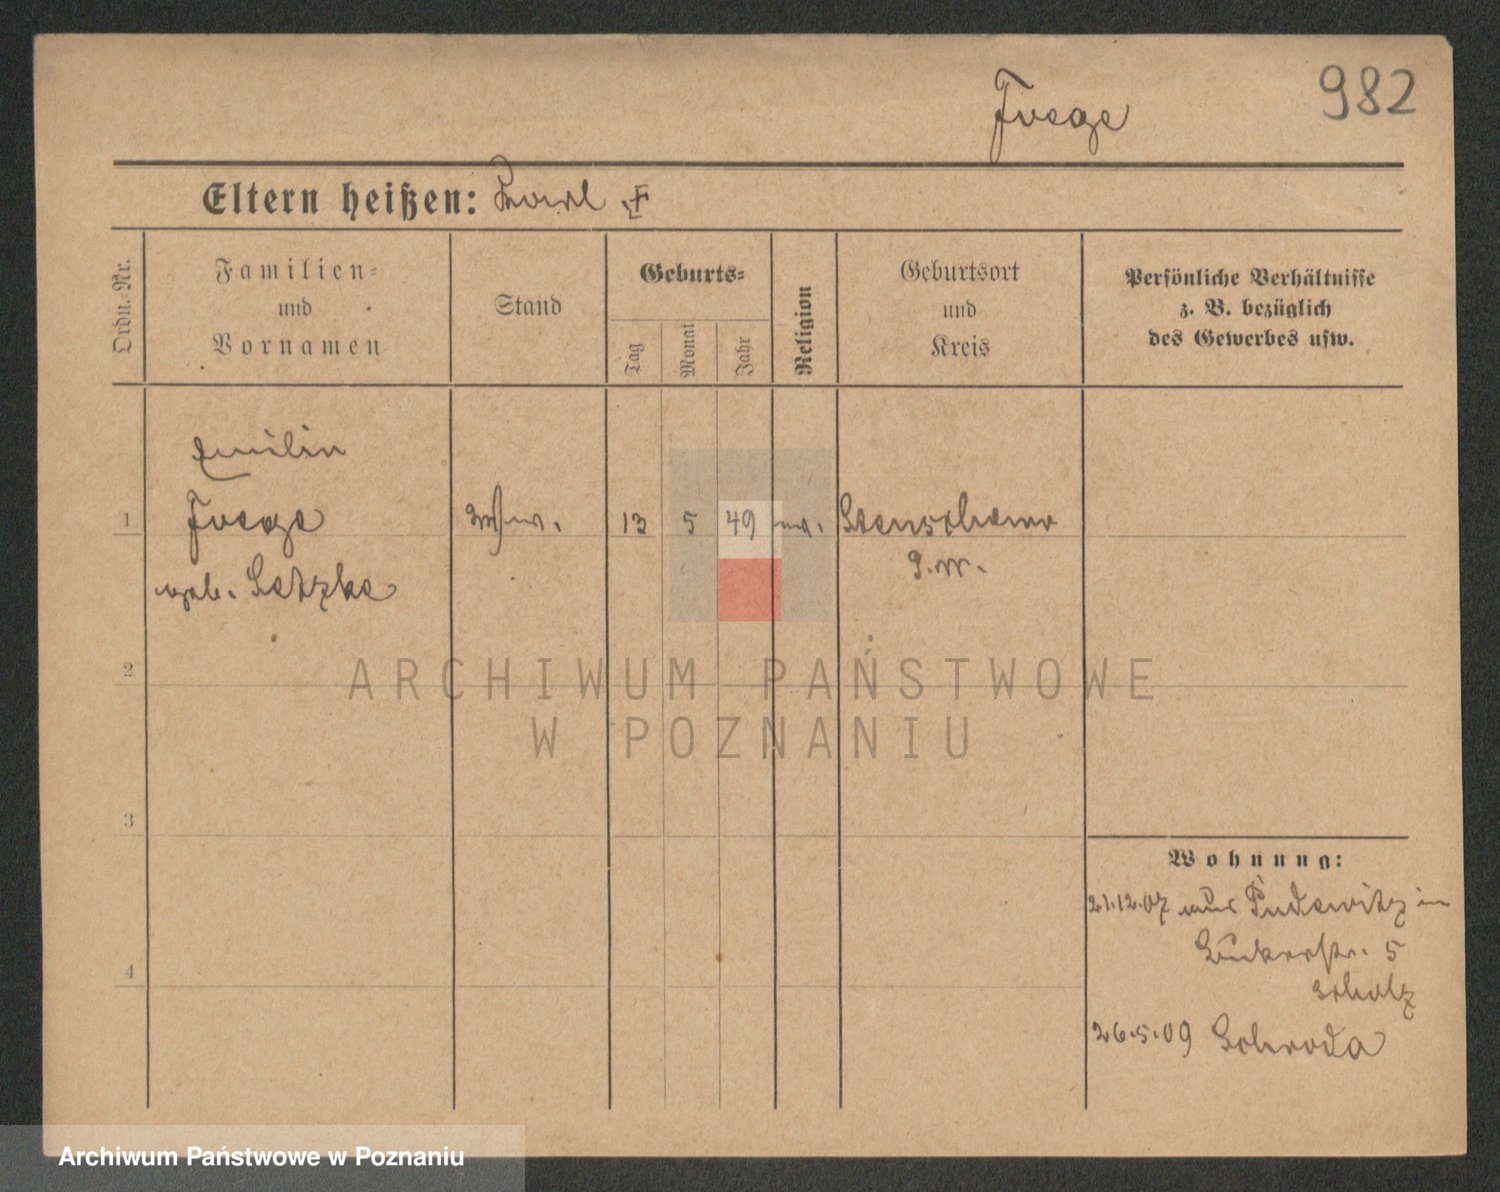 982
Frege
Eltern heißen: Karl
Ordn.-Nr.
Familien-
und
Vornamen
Stand
Geburts-
Tag
Monat
Jahr
Religion
Geburtsort
und
Kreis
Persönliche Verhältnisse
z. B. bezüglich
des Gewerbes usw.
Emilie
1 Frege 13 5 49 ev.
geb. Letzke
2
3
4
Wohnung:
21.12.07 aus Pudewitz in
5
Scholz
26.5.09 Schroda
ARCHIWUM PAŃSTWOWE
W POZNANIU
Archiwum Państwowe w Poznaniu